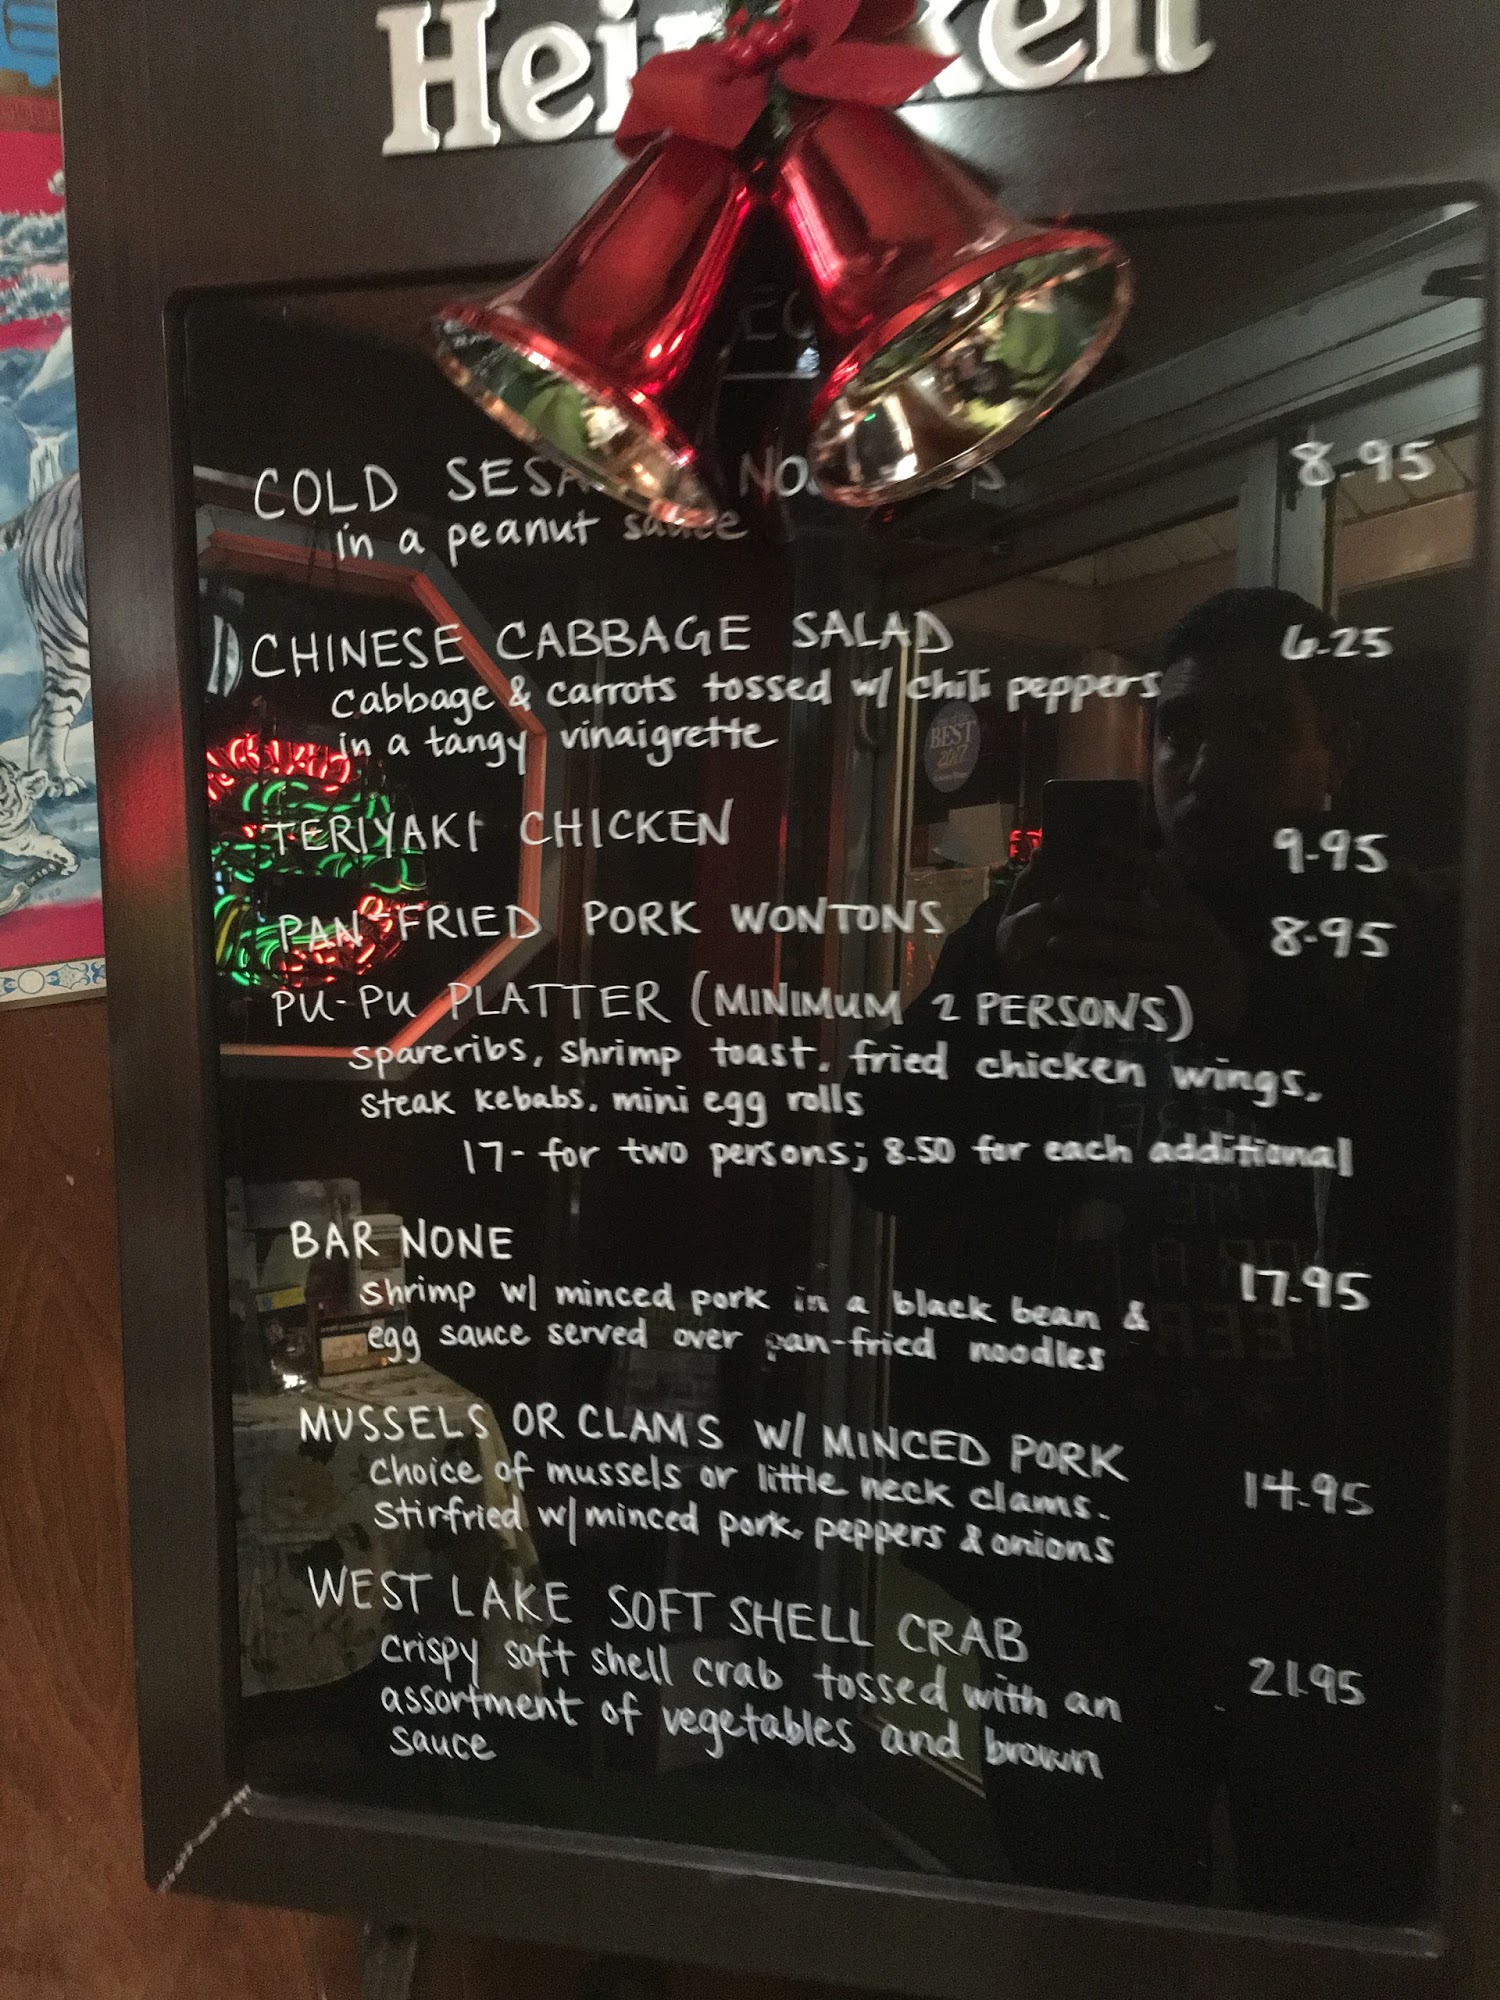 COLD
8.95
in a peanut sauce
CHINESE CABBAGE SALAD
6.25
cabbage & carrots tossed w/ chili peppers
in a tangy vinaigrette
BEST
2017
TERIYAKI CHICKEN
9.95
PAN-FRIED PORK WONTONS
8.95
PU-PU PLATTER (MINIMUM 2 PERSONS)
spareribs, shrimp toast, fried chicken wings,
steak kebabs, mini egg rolls
17- for two persons; 8.50 for each additional
BAR NONE
17.95
shrimp w/ minced pork in a black bean &
egg sauce served over pan-fried noodles
MUSSELS OR CLAMS W/ MINCED PORK
14.95
choice of mussels or little neck clams.
Stirfried w/ minced pork, peppers & onions
WEST LAKE SOFT SHELL CRAB
21.95
crispy soft shell crab tossed with an
assortment of vegetables and brown
sauce